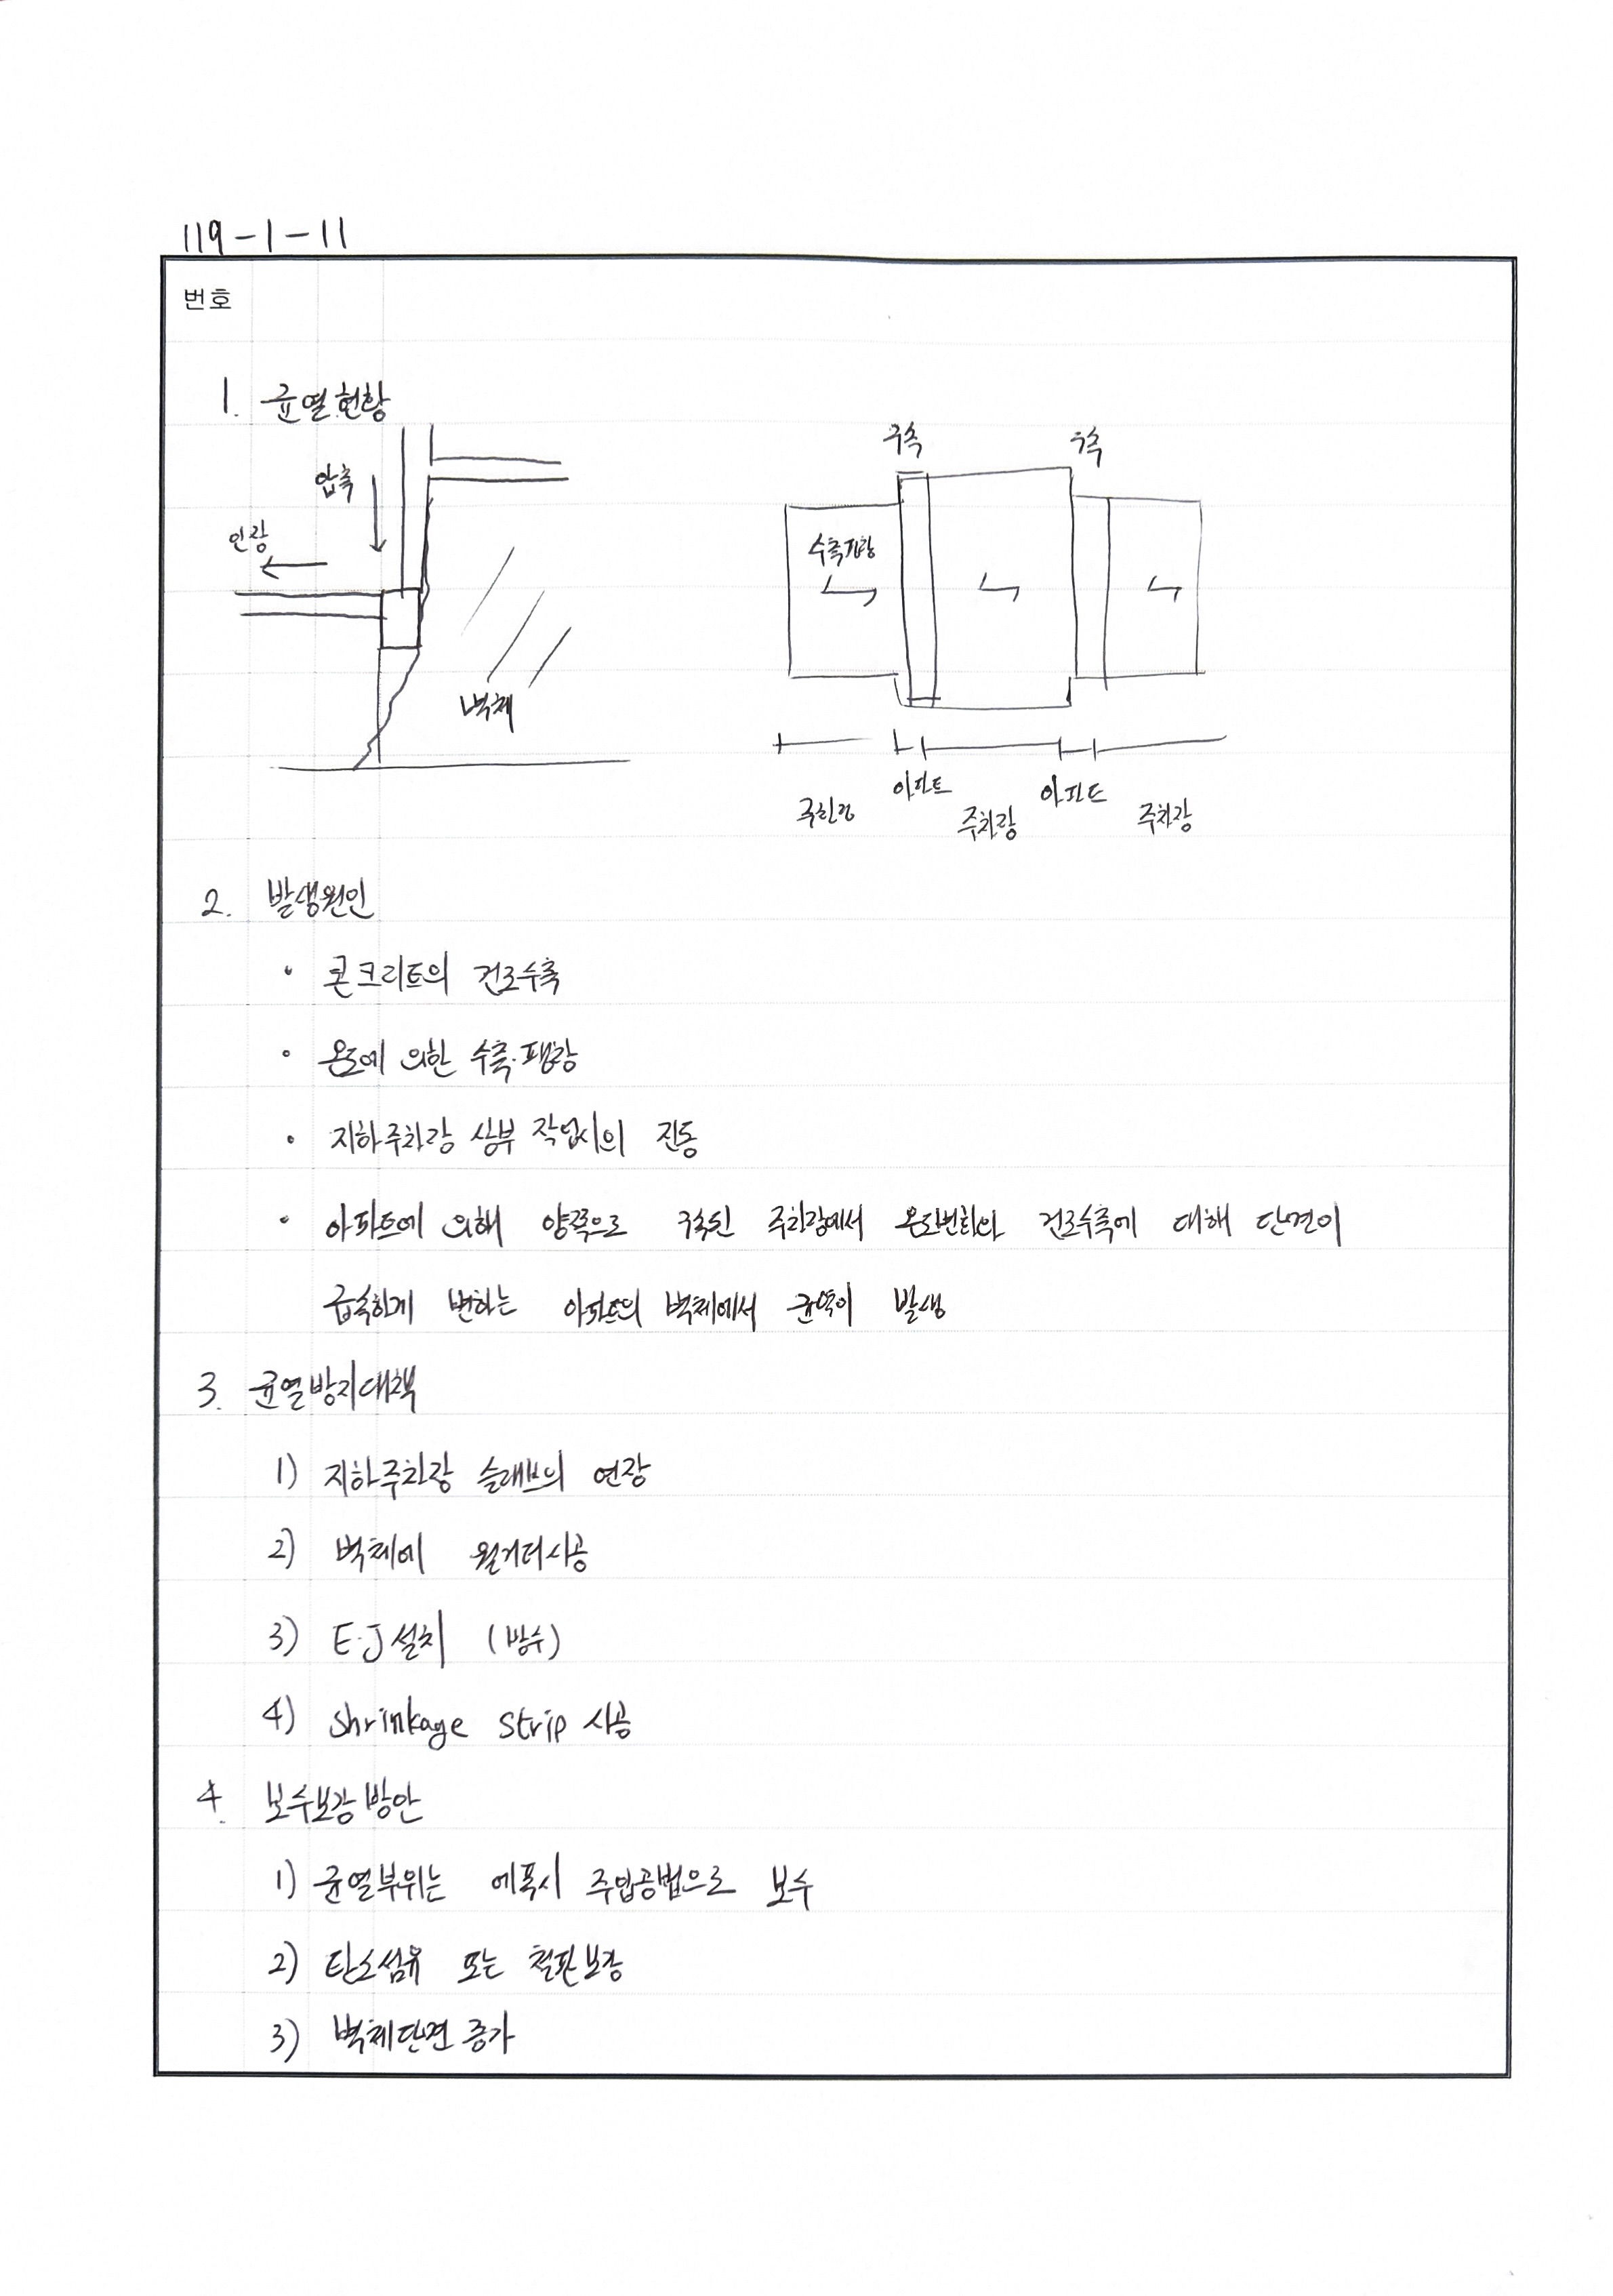 119-1-11
번호
1. 균열현황
구속 구속
압축
인장
수축팽창
벽체
아파트 아파트
주차장 주차장 주차장
2. 발생원인
• 콘크리트의 건조수축
• 온도에 의한 수축·팽창
• 지하주차장 상부 작업시의 진동
• 아파트에 의해 양쪽으로 구속된 주차장에서 온도변화와 건조수축에 대해 단면이
급속하게 변하는 아파트의 벽체에서 균열이 발생
3. 균열방지대책
1) 지하주차장 슬래브의 연장
2) 벽체에 월거더시공
3) E.J 설치 (방수)
4) Shrinkage Strip 시공
4. 보수보강방안
1) 균열부위는 에폭시 주입공법으로 보수
2) 탄소섬유 또는 철판보강
3) 벽체단면 증가